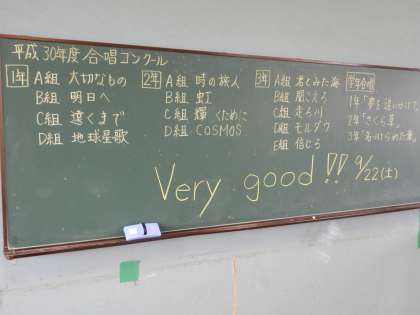 平成30年度 合唱コンクール
1年 A組 大切なもの
B組 明日へ
C組 遠くまで
D組 地球星歌
2年 A組 時の旅人
B組 虹
C組 輝くために
D組 COSMOS
3年 A組 君とみた海
B組 聞こえる
C組 走る川
D組 モルダウ
E組 信じる
学年合唱
1年「夢を追いかけて」
2年「さくら草」
3年「
Very good !! 9/22(土)